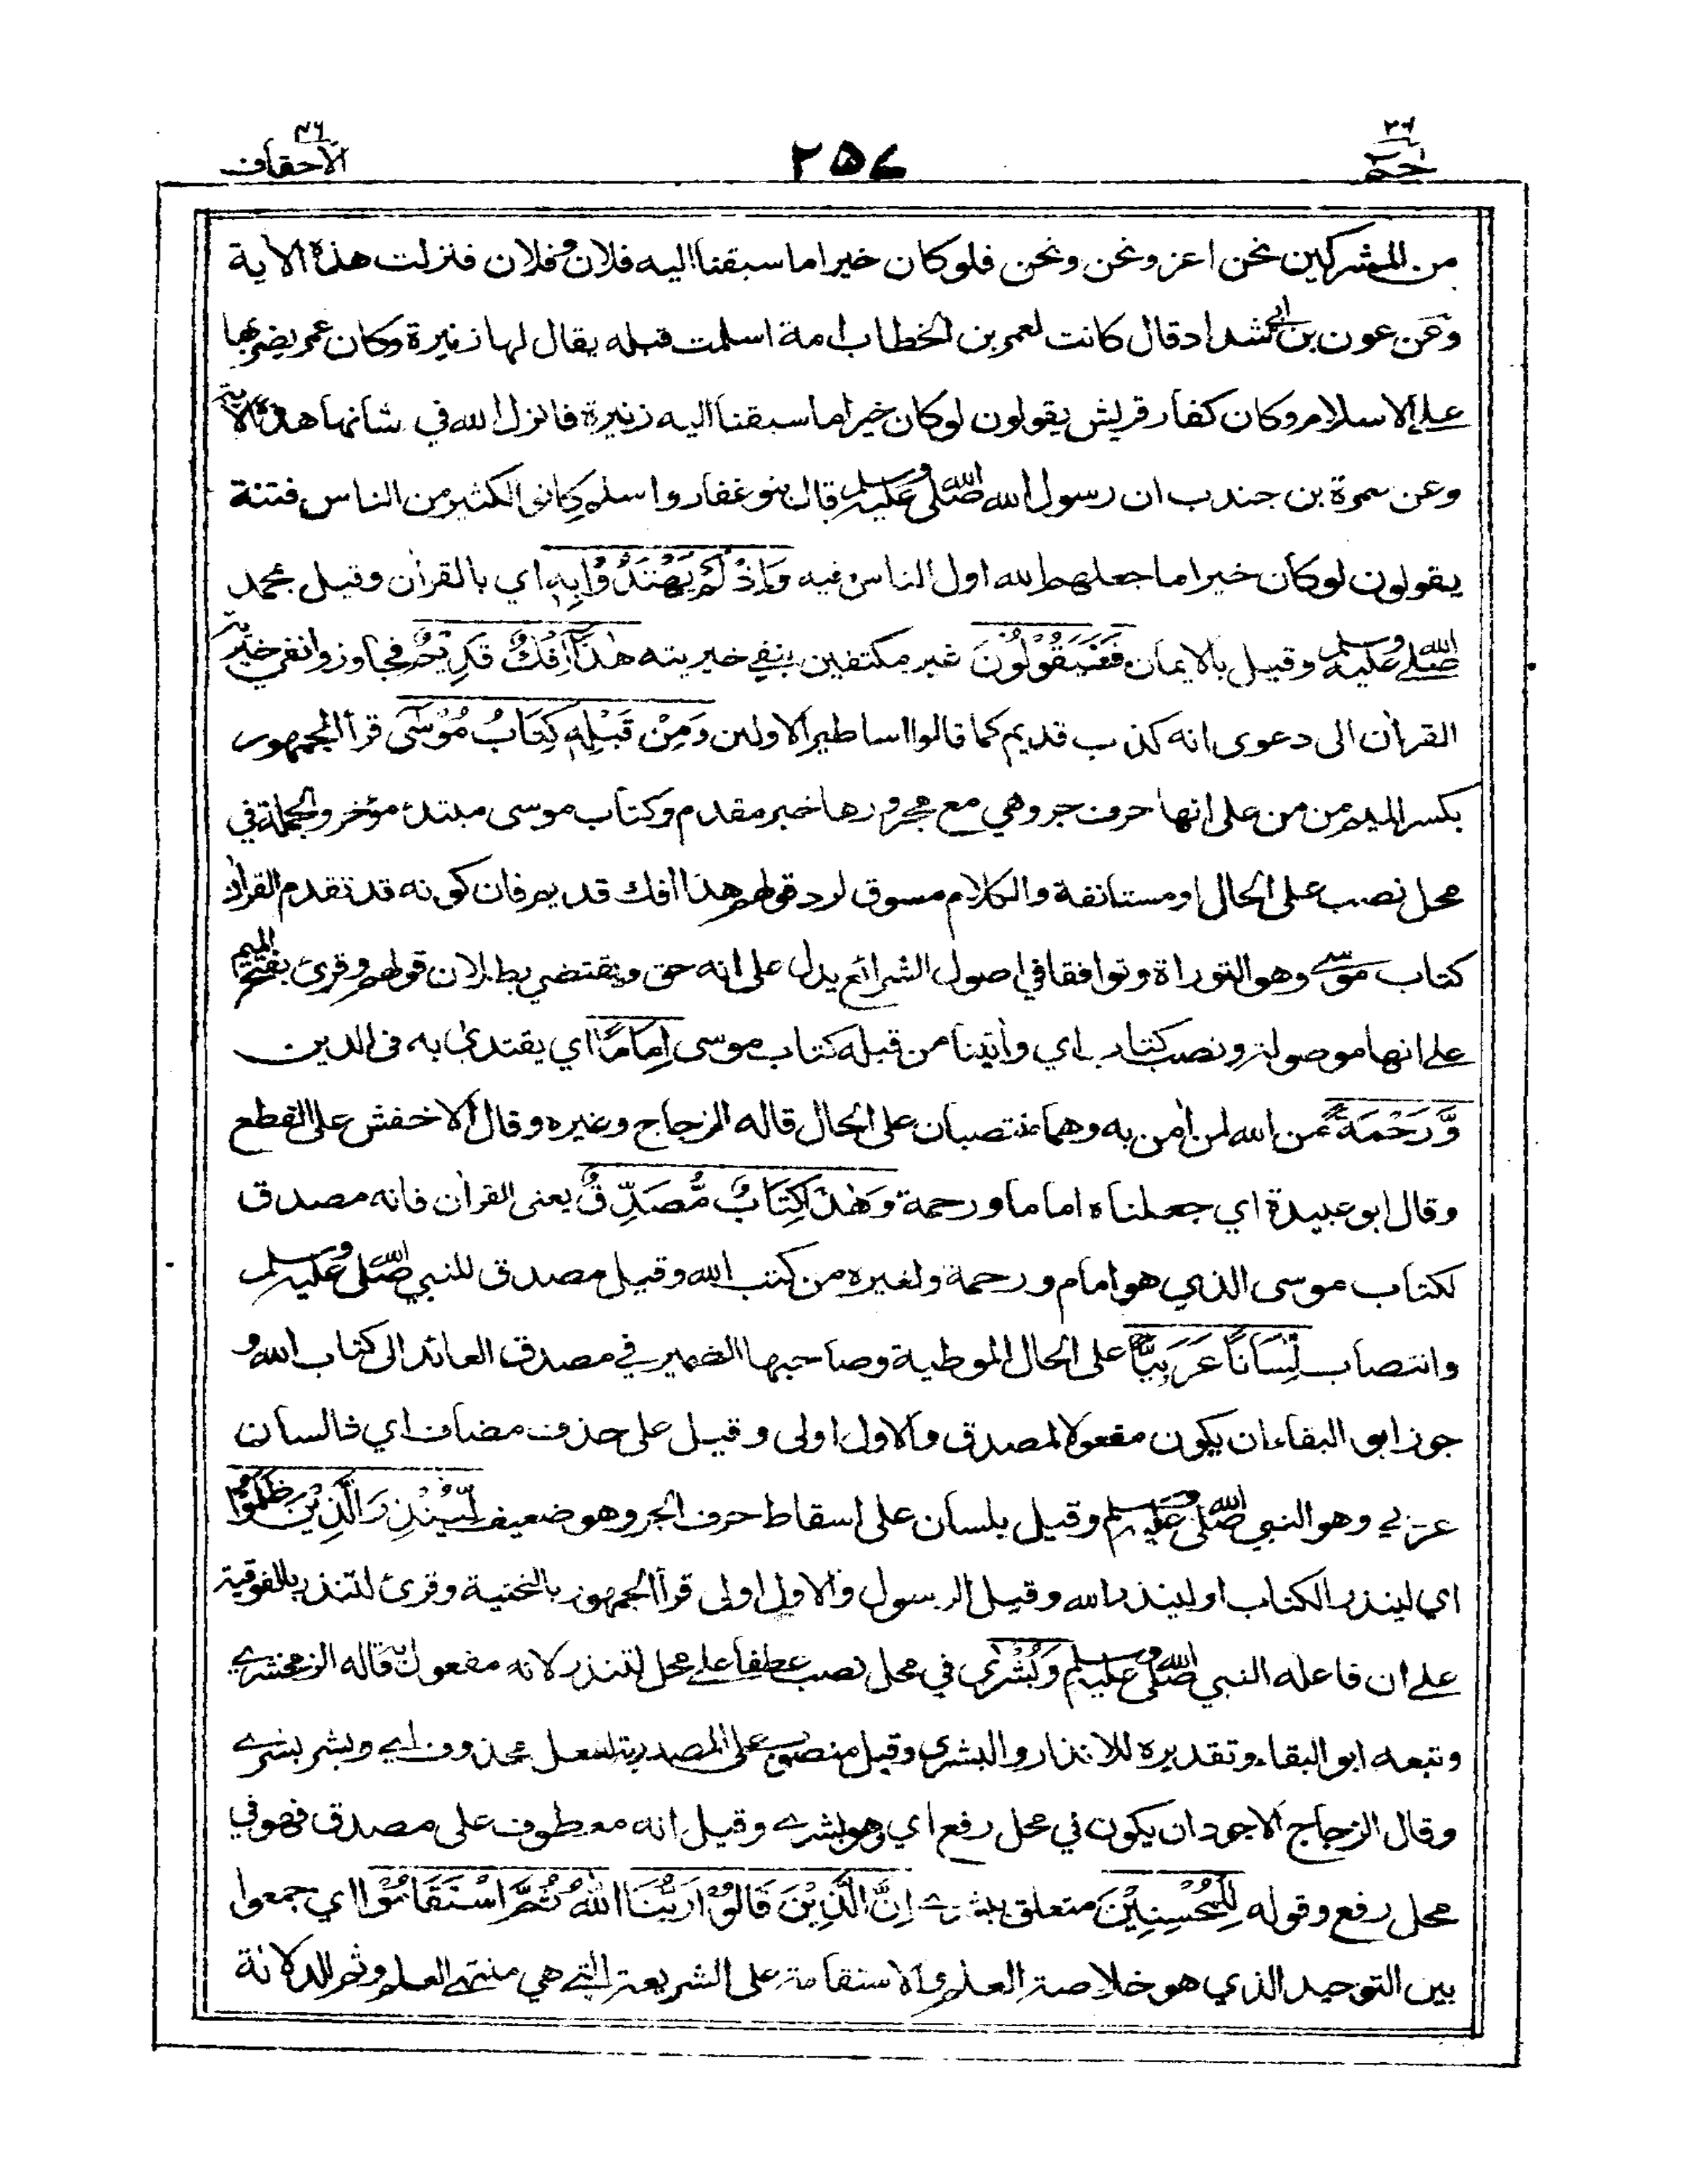 حم ٢٦
٢٥٧
الأحقاف ٤٦
من المشركين نحن اعز ونحن ونحن فلوكان خيراما سبقنااليه فلان وفلان فنزلت هذه الأية
وعن عون بن ابي شداد قال كانت لعمر بن الخطاب امة اسلمت قبله يقال لها زنيرة وكان عمر يضربها
على الاسلام وكان كفار قريش يقولون لوكان خيراما سبقنااليه زنيرة فانزل الله في شانها هذه الأية
وعن سمرة بن جندب ان رسول الله صلى الله عليه وسلم قال بنو غفار واسلم كانوا لكثير من الناس فتنة
يقولون لوكان خيراما جعلهم الله اول الناس فيه وَاِذْ لَمْ يَهْتَدُوْا بِهٖ اي بالقرأن وقيل بمحمد
صلى الله عليه وسلم وقيل بالايمان فَسَيَقُوْلُوْنَ غير مكتفين بنفي خيريته هٰذَآ اِفْكٌ قَدِيْمٌ فجاوزوا نفي خيرية
القرأن الى دعوى انه كذب قديم كما قالوا اساطير الاولين وَمِنْ قَبْلِهٖ كِتَابُ مُوْسٰٓى قرأ الجمهور
بكسر الميم من من على انها حرف جر وهي مع مجرورها خبر مقدم وكتاب موسى مبتدئ مؤخر والجملة في
محل نصب على الحال او مستانفة والكلام مسوق لرد قولهم هذا افك قديم فان كونه قد تقدم القرأن
كتاب موسى وهو التوراة وتوافقا في اصول الشرائع يدل على انه حق ويقتضي بطلان قولهم وقرئ بفتح الميم
على انها موصولة ونصب كتاب اي وأتينا من قبله كتاب موسى اِمَامًا اي يقتدى به فى الدين
وَّرَحْمَةً من الله لمن أمن به وهما منتصبان على الحال قاله الزجاج وغيره وقال الاخفش على القطع
وقال ابو عبيدة اي جعلناه اماما ورحمة وَهٰذَا كِتَابٌ مُّصَدِّقٌ يعنى القرأن فانه مصدق
لكتاب موسى الذي هو امام ورحمة ولغيره من كتب الله وقيل مصدق للنبي صلى الله عليه وسلم
وانتصاب لِّسَانًا عَرَبِيًّا على الحال الموطية وصاحبها الضمير في مصدق العائد الى كتاب الله و
جوز ابو البقاء ان يكون مفعولا لمصدق والاول اولى وقيل على حذف مضاف اي ذالسان
عربي وهو النبي صلى الله عليه وسلم وقيل بلسان على اسقاط حرف الجر وهو ضعيف لِّيُنْذِرَ الَّذِيْنَ ظَلَمُوْا
اي لينذر الكتاب او لينذر الله وقيل الرسول والاول اولى قرأ الجمهور بالتحتية وقرئ لتنذر بالفوقية
على ان فاعله النبي صلى الله عليه وسلم وَبُشْرٰى في محل نصب عطفا على محل لتنذر لانه مفعول له قاله الزمخشري
وتبعه ابو البقاء وتقديره للانذار والبشرى وقيل منصوب على المصدرية لفعل محذوف اي وبشر بشرى
وقال الزجاج الاجود ان يكون في محل رفع اي وهو بشرى وقيل انه معطوف على مصدق فهو في
محل رفع وقوله لِلْمُحْسِنِيْنَ متعلق ببشرى اِنَّ الَّذِيْنَ قَالُوْا رَبُّنَا اللّٰهُ ثُمَّ اسْتَقَامُوْا اي جمعوا
بين التوحيد الذي هو خلاصة العلم والاستقامة على الشريعة التي هي منتهى العلم وثم للدلالة